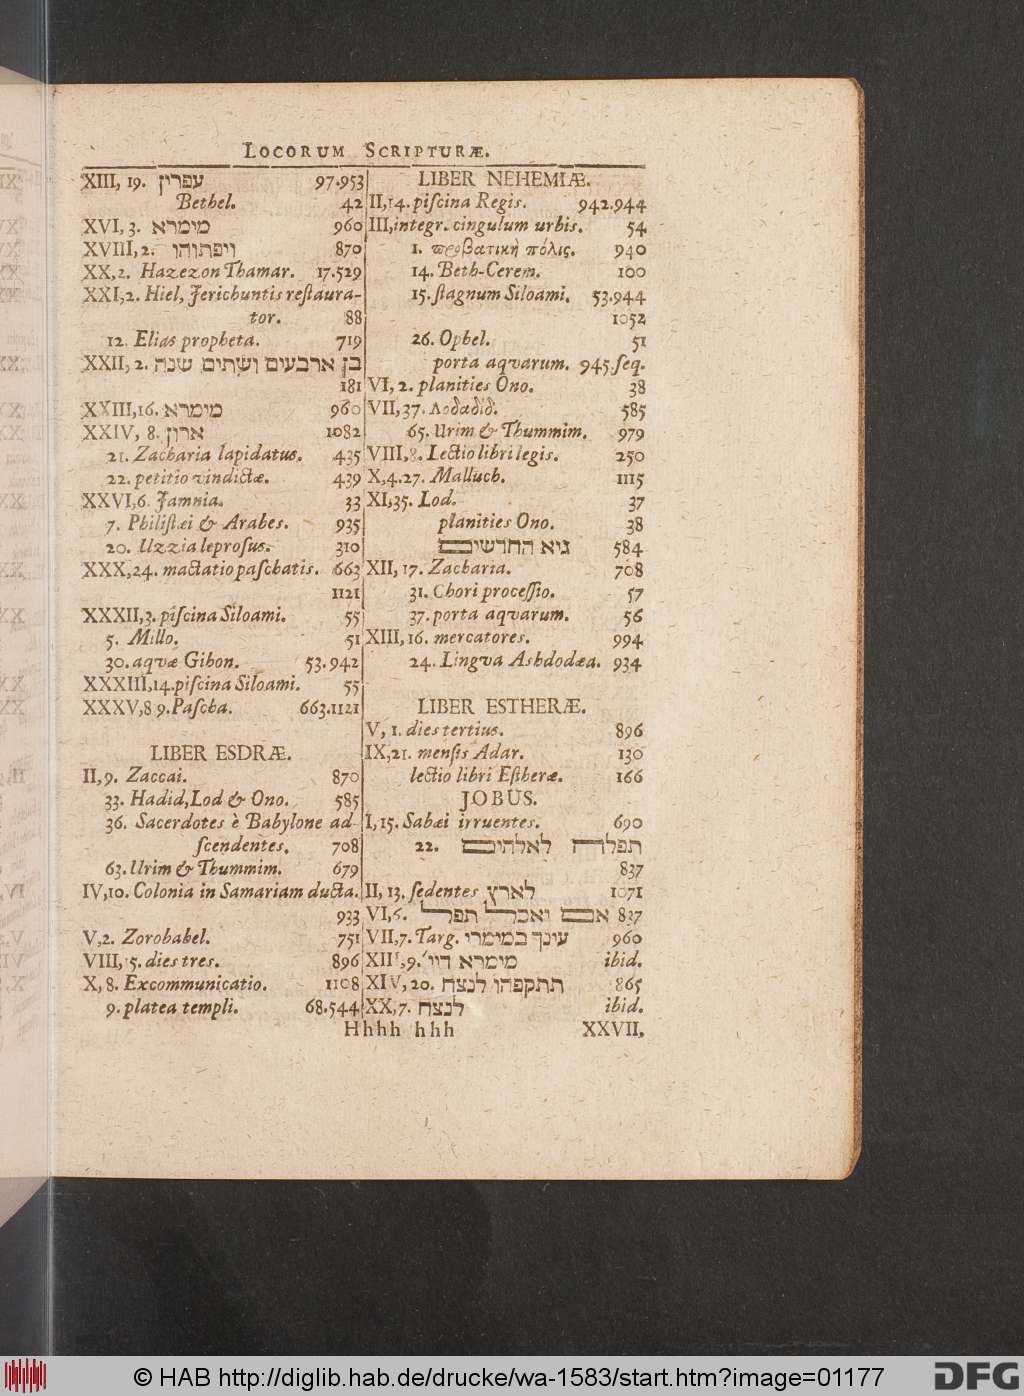 LOCORUM SCRIPTURÆ.
XIII, 19. עפרון 97.953
Bethel. 42
XVI, 3. מימרא 960
XVIII, 2. ויפתוהו 870
XX, 2. Hazezon Thamar. 17.529
XXI, 2. Hiel, Jerichuntis reſtaura-
tor. 88
12. Elias propheta. 719
XXII, 2. בן ארבעים ושתים שנה
181
XXIII, 16. מימרא 960
XXIV, 8. ארון 1082
21. Zacharia lapidatus. 435
22. petitio vindictæ. 439
XXVI, 6. Jamnia. 33
7. Philiſtæi & Arabes. 935
20. Uzzia leproſus. 310
XXX, 24. mactatio paſchatis. 663
1121
XXXII, 3. piſcina Siloami. 55
5. Millo. 51
30. aqvæ Gihon. 53.942
XXXIII, 14. piſcina Siloami. 55
XXXV, 8 9. Paſcha. 663.1121
LIBER ESDRÆ.
II, 9. Zaccai. 870
33. Hadid, Lod & Ono. 585
36. Sacerdotes è Babylone ad-
ſcendentes. 708
63. Urim & Thummim. 679
IV, 10. Colonia in Samariam ducta.
933
V, 2. Zorobabel. 751
VIII, 15. dies tres. 896
X, 8. Excommunicatio. 1108
9. platea templi. 68.544
LIBER NEHEMIÆ.
II, 14. piſcina Regis. 942.944
III, integr. cingulum urbis. 54
1. προβατικὴ πόλις. 940
14. Beth-Cerem. 100
15. ſtagnum Siloami. 53.944
1052
26. Ophel. 51
porta aqvarum. 945.ſeq.
VI, 2. planities Ono. 38
VII, 37. Λοδαδίδ. 585
65. Urim & Thummim. 979
VIII, 8. Lectio libri legis. 250
X, 4.27. Malluch. 1115
XI, 35. Lod. 37
planities Ono. 38
גיא החרשים 584
XII, 17. Zacharia. 708
31. Chori proceſſio. 57
37. porta aqvarum. 56
XIII, 16. mercatores. 994
24. Lingva Ashdodæa. 934
LIBER ESTHERÆ.
V, 1. dies tertius. 896
IX, 21. menſis Adar. 130
lectio libri Eſtheræ. 166
JOBUS.
I, 15. Sabæi irruentes. 690
22. תפלה לאלהים
837
II, 13. ſedentes לארץ 1071
VI, 6. אם יאכל תפל 837
VII, 7. Targ. עינך במימרי 960
XIII, 9. מימרא דיי ibid.
XIV, 20. תתקפהו לנצח 865
XX, 7. לנצח ibid.
Hhhh hhh XXVII,
© HAB http://diglib.hab.de/drucke/wa-1583/start.htm?image=01177
DFG